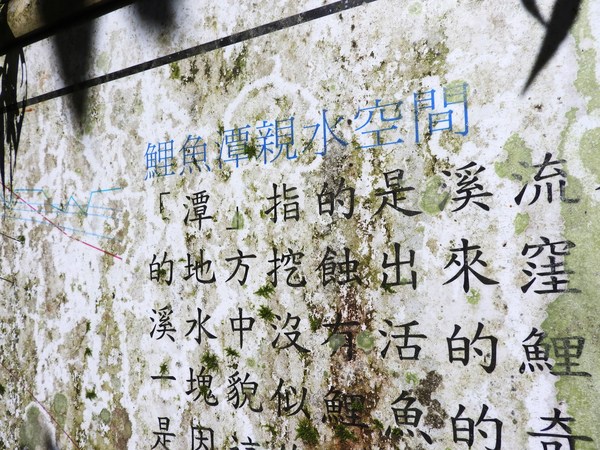 鯉魚潭親水空間
「潭」指的是溪流
的地方挖蝕出來窪
溪水中沒有活的鯉
一塊貌似鯉魚的奇
是因這